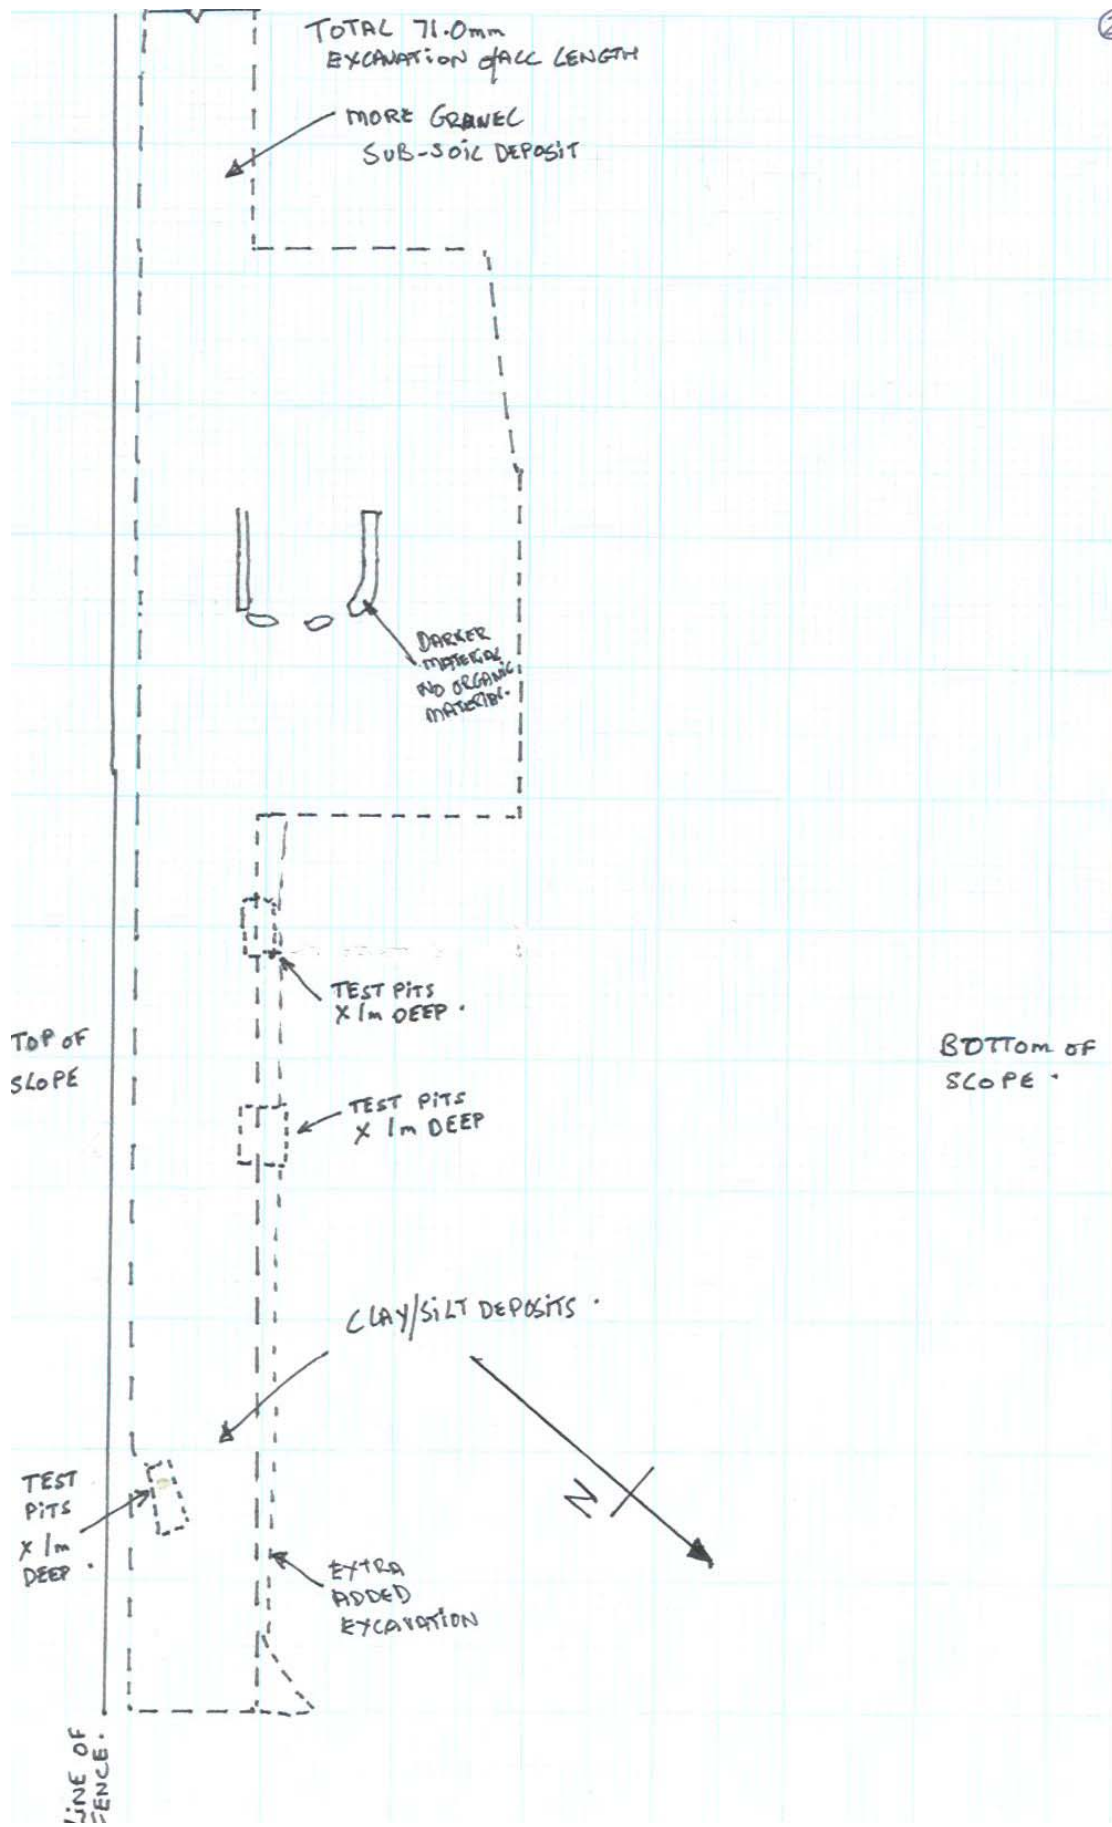 ②
TOTAL 71.0mm
EXCAVATION of ALL LENGTH
MORE GRAVEL
SUB-SOIL DEPOSIT
DARKER
MATERIAL
NO ORGANIC
MATERIAL.
TEST PITS
X 1m DEEP.
TOP OF
SLOPE
BOTTOM OF
SLOPE.
TEST PITS
X 1m DEEP
CLAY/SILT DEPOSITS.
N
TEST
PITS
X 1m
DEEP.
EXTRA
ADDED
EXCAVATION
LINE OF
FENCE.